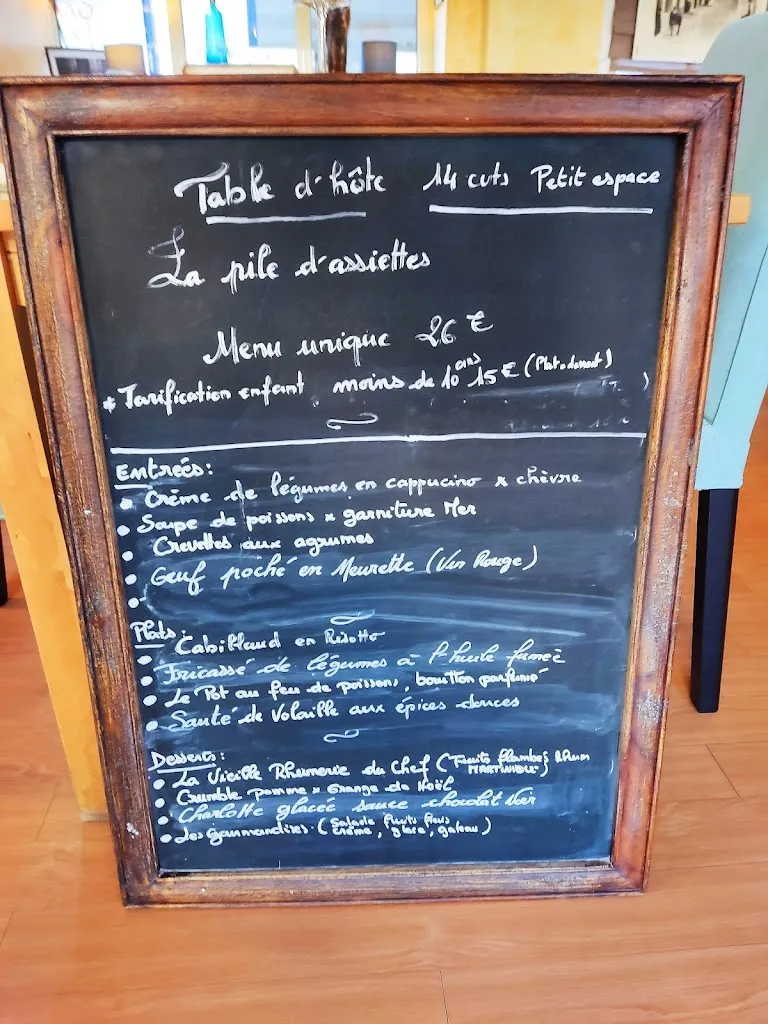 Table d'hôte 14 cvts Petit espace
La pile d'assiettes
Menu unique 26 €
* Tarification enfant moins de 10 ans 15 € (Plat + dessert)
Entrées:
• Crème de légumes en cappucino x chèvre
• Soupe de poissons x garniture Mer
• Crevettes aux agrumes
• Oeuf poché en Meurette (Vin Rouge)
•
Plats:
• Cabillaud en Risotto
• Fricassé de légumes à l'huile fumée
• Le Pot au feu de poissons, bouillon parfumé
• Sauté de Volaille aux épices douces
Desserts:
• La Vieille Rhumerie du Chef (Fruits flambés Rhum MARTINIQUE)
• Crumble pomme x Orange de Noël
• Charlotte glacée sauce chocolat Noir
• Les Gourmandises. (Salade fruits frais, crème, glace, gateau)